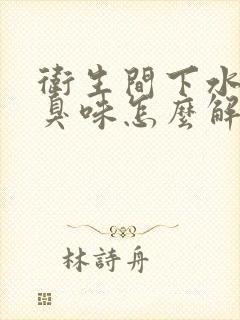 衛生間下水
臭味怎麼解
林詩舟